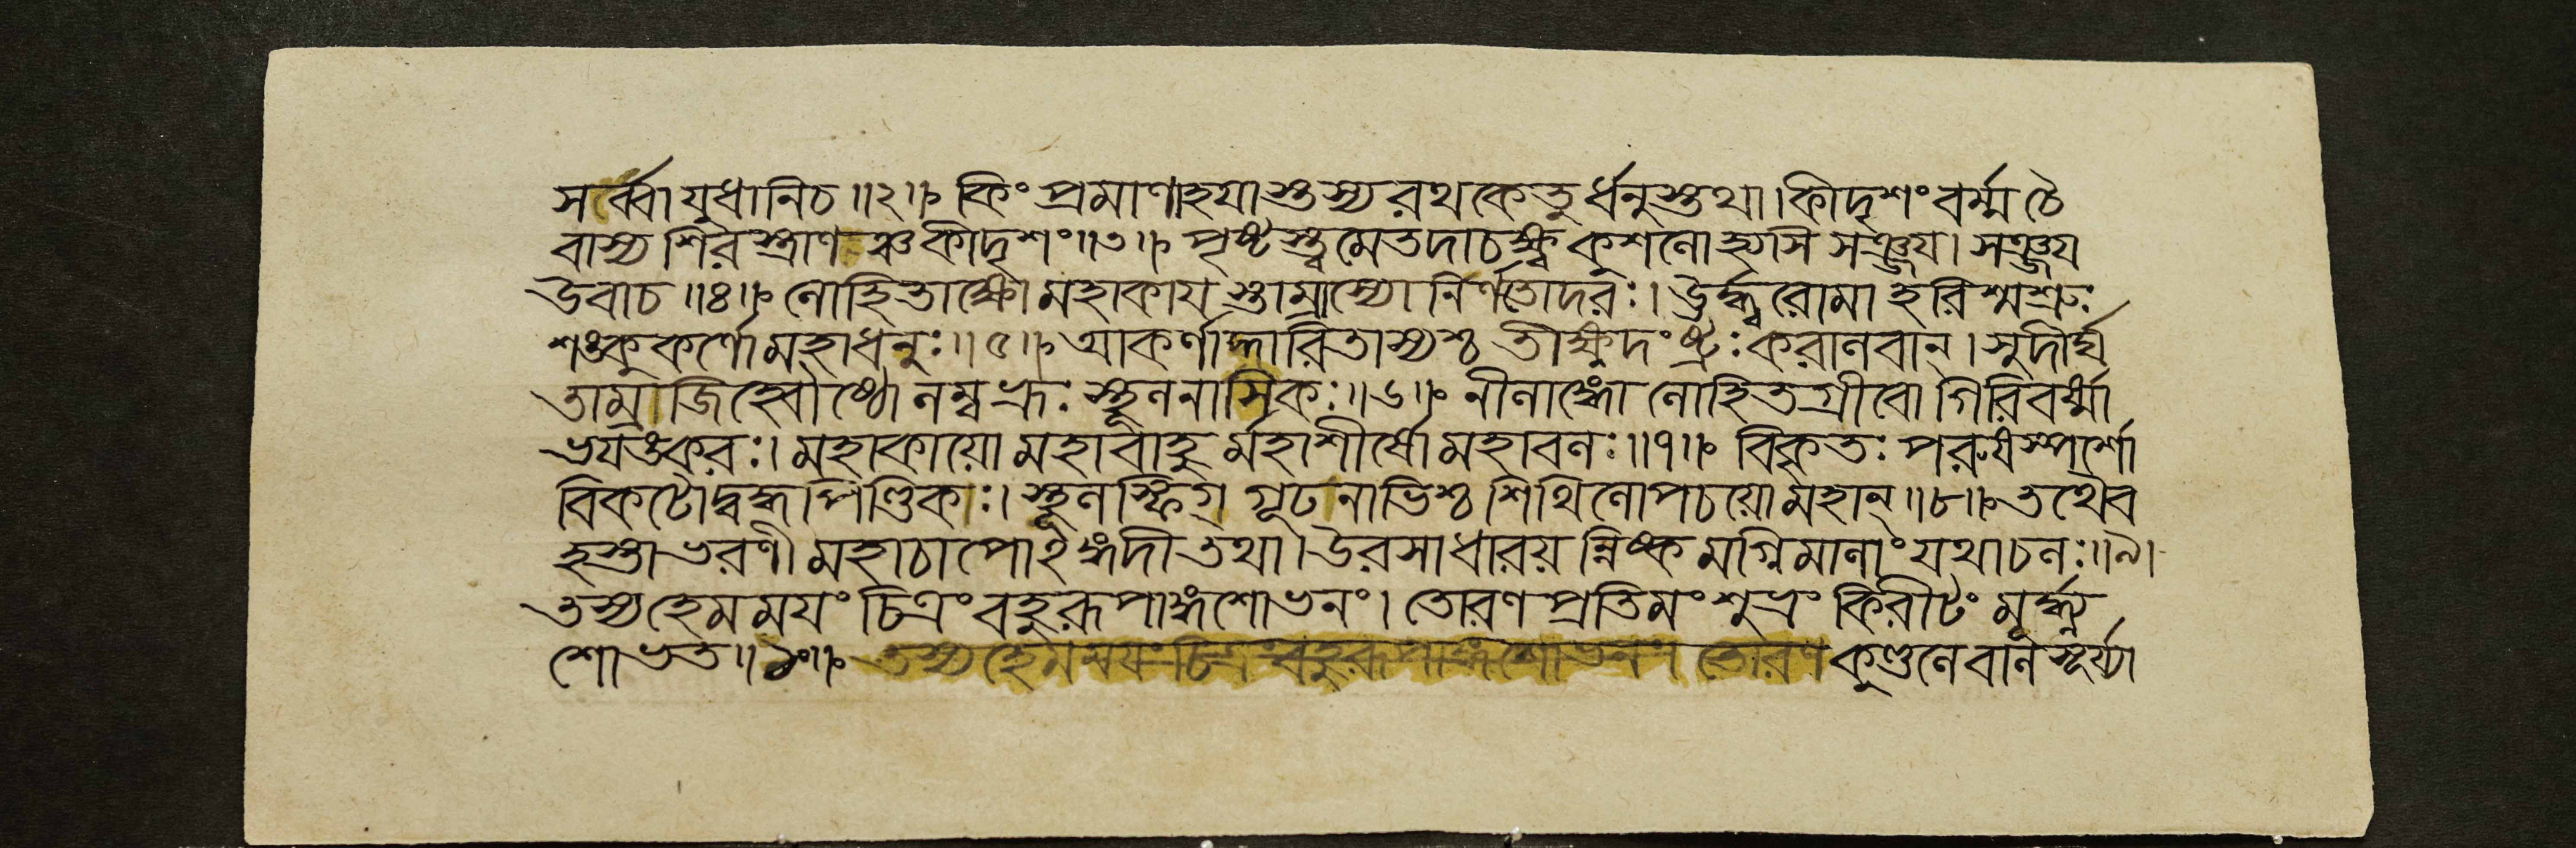 সর্ব্বায়ুধানিচ॥২॥ কিং প্রমাণাহয়াস্তস্য রথকেতুর্ধনুস্তথা।কীদৃশং বর্ম্ম চৈ
বাস্য শিরস্ত্রাণঞ্চ কীদৃশং॥৩॥ পৃষ্টস্ত্বমেতদাচক্ষ্ব কুশলোহ্যসি সঞ্জয়। সঞ্জয়
উবাচ॥৪॥ লোহিতাক্ষো মহাকায়স্তাম্রাস্যো নির্ণতোদরঃ। ঊর্দ্ধ্বরোমা হরিশ্মশ্রুঃ
শঙ্কুকর্ণো মহাধনুঃ॥৫॥ আকর্ণাদ্দারিতাস্যশ্চ তীক্ষ্ণদংষ্ট্রঃ করালবান্। সুদীর্ঘ
তাম্রজিহ্বোষ্ঠো লম্বভ্রূঃ স্থূলনাসিকঃ॥৬॥ নীলাঙ্গো লোহিতগ্রীবো গিরিবর্ষ্মা
ভয়ঙ্করঃ। মহাকায়ো মহাবাহুর্মহাশীর্ষো মহাবলঃ॥৭॥ বিকৃতঃ পরুষস্পর্শো
বিকটোদ্বদ্ধপিণ্ডিকাঃ। স্থূলস্ফিগ্ গূঢনাভিশ্চ শিথিলোপচয়ো মহান্॥৮॥ তথৈব
হস্তাভরণী মহাচাপোঽঙ্গদী তথা। উরসা ধারয়ন্নিষ্কমগ্নিমালাং যথাচলঃ॥৯।
তস্য হেমময়ং চিত্রং বহুরূপাঙ্গশোভনং। তোরণপ্রতিমং শুভ্রং কিরীটং মূর্দ্ধ্ন্য
শোভত॥১০॥ তস্য হেমময়ং চিত্রং বহুরূপাঙ্গশোভনং। তোরণ কুণ্ডলে বালসূর্য্যা